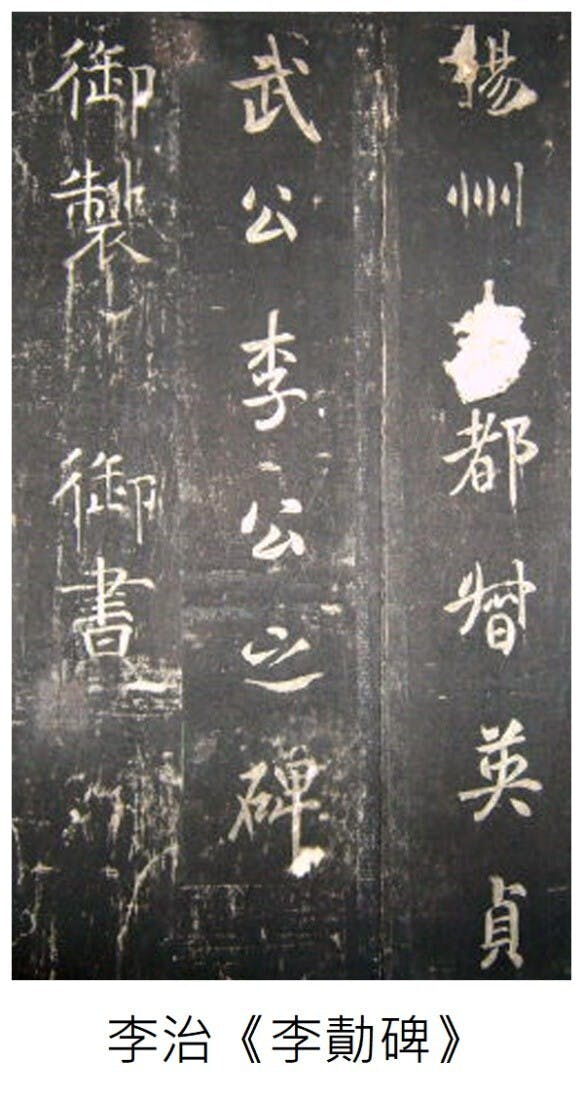 揚州都督英貞
武公李公之碑
御製 御書
李治《李勣碑》